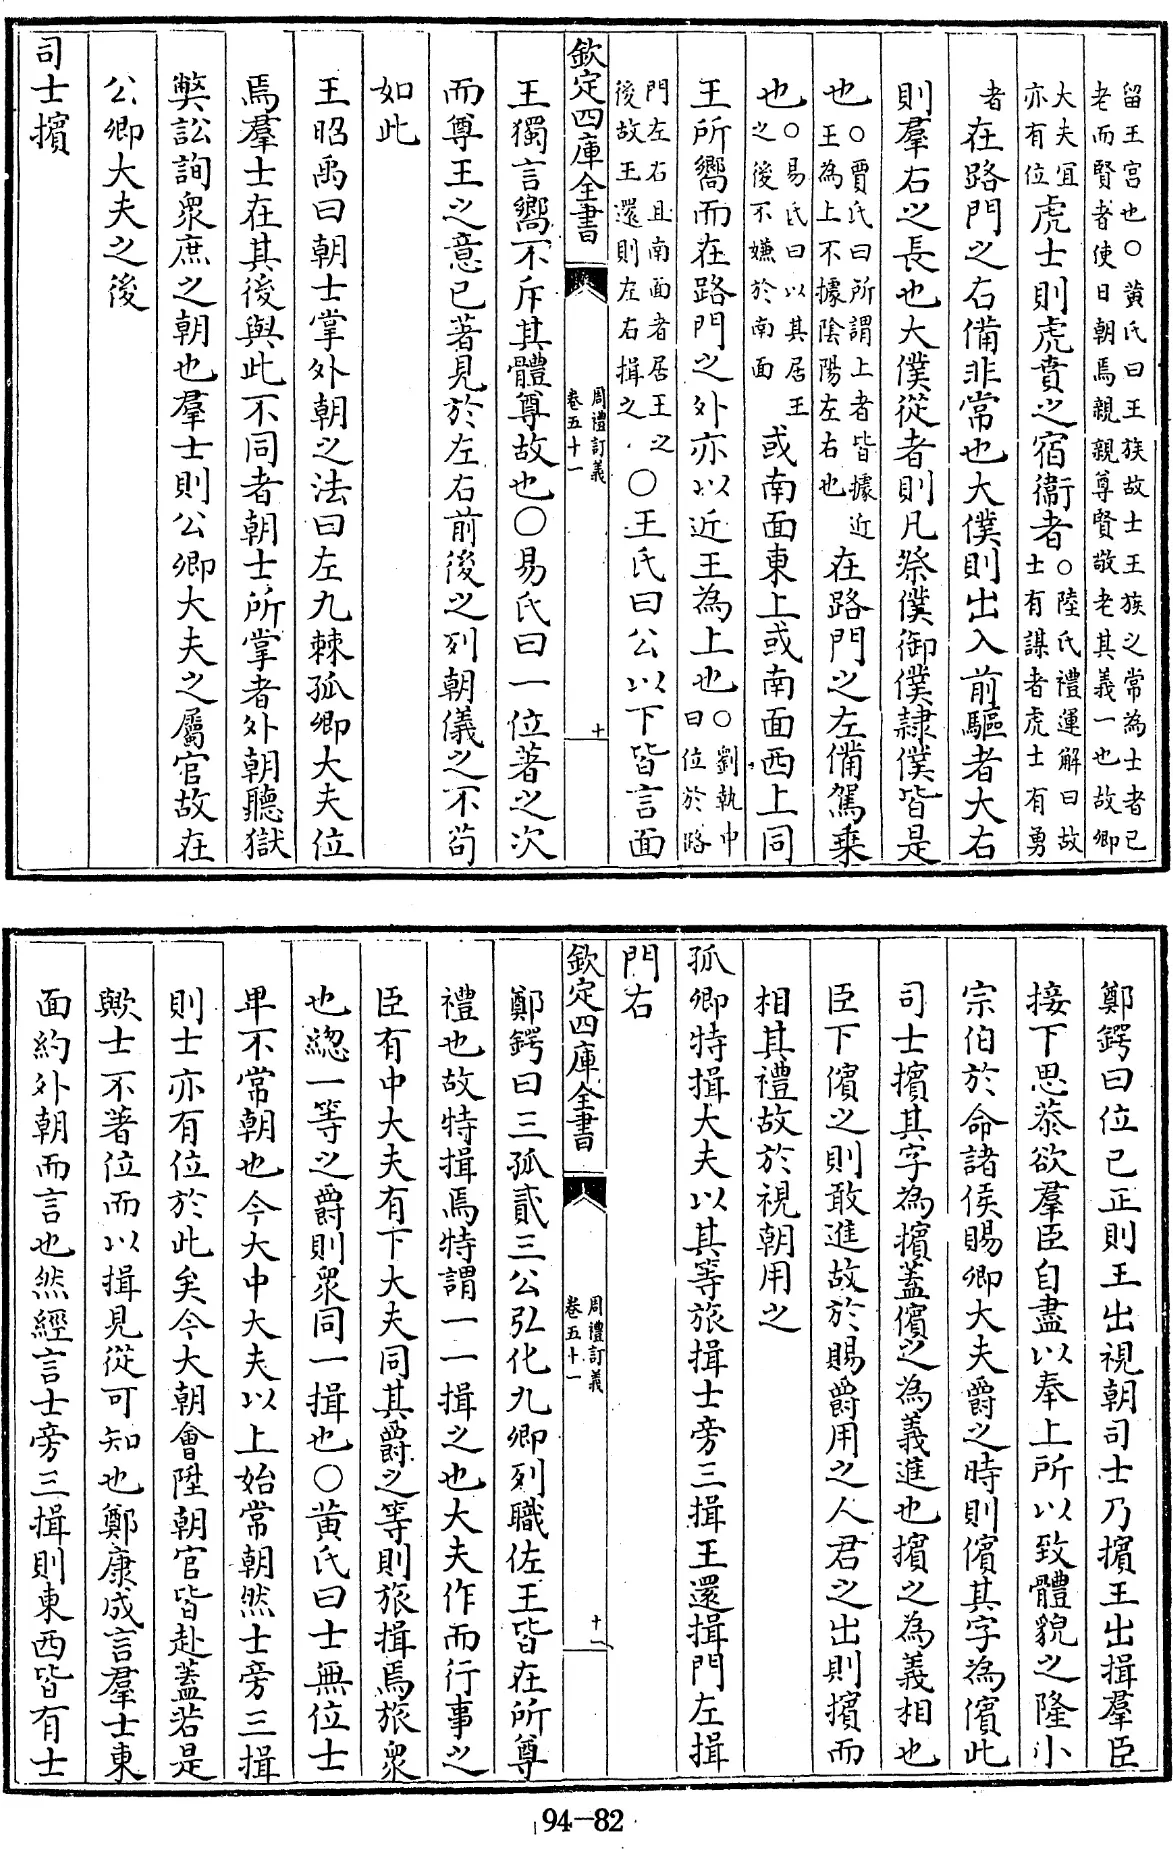 留王宫也〇黄氏曰王族故士王族之常為士者已
老而賢者使日朝焉親親尊賢敬老其義一也故卿
大夫宜亦有位虎士則虎賁之宿衛者〇陸氏禮運解曰故士有謀者虎士有勇
者在路門之右備非常也大僕則出入前驅者大右
則羣右之長也大僕從者則凡祭僕御僕隸僕皆是
也〇賈氏曰所謂上者皆據近王為上不據陰陽左右也在路門之左備駕乗
也〇易氏曰以其居王之後不嫌於南面或南面東上或南面西上同
王所嚮而在路門之外亦以近王為上也〇劉執中曰位於路
門左右且南面者居王之後故王還則左右揖之〇王氏曰公以下皆言面
欽定四庫全書
周禮訂義
卷五十一
十
王獨言嚮不斥其體尊故也〇易氏曰一位著之次
而尊王之意已著見於左右前後之列朝儀之不茍
如此
王昭禹曰朝士掌外朝之法曰左九棘孤卿大夫位
焉羣士在其後與此不同者朝士所掌者外朝聽獄
弊訟詢衆庶之朝也羣士則公卿大夫之屬官故在
公卿大夫之後
司士擯
鄭鍔曰位已正則王出視朝司士乃擯王出揖羣臣
接下思恭欲羣臣自盡以奉上所以致體貌之隆小
宗伯於命諸侯賜卿大夫爵之時則儐其字為儐此
司士擯其字為擯蓋儐之為義進也擯之為義相也
臣下儐之則敢進故於賜爵用之人君之出則擯而
相其禮故於視朝用之
孤卿特揖大夫以其等旅揖士旁三揖王還揖門左揖
門右
欽定四庫全書
周禮訂義
卷五十一
十一
鄭鍔曰三孤貳三公弘化九卿列職佐王皆在所尊
禮也故特揖焉特謂一一揖之也大夫作而行事之
臣有中大夫有下大夫同其爵之等則旅揖焉旅衆
也緫一等之爵則衆同一揖也〇黄氏曰士無位士
卑不常朝也今大中大夫以上始常朝然士旁三揖
則士亦有位於此矣今大朝會陞朝官皆赴蓋若是
歟士不著位而以揖見從可知也鄭康成言羣士東
面約外朝而言也然經言士旁三揖則東西皆有士
94-82